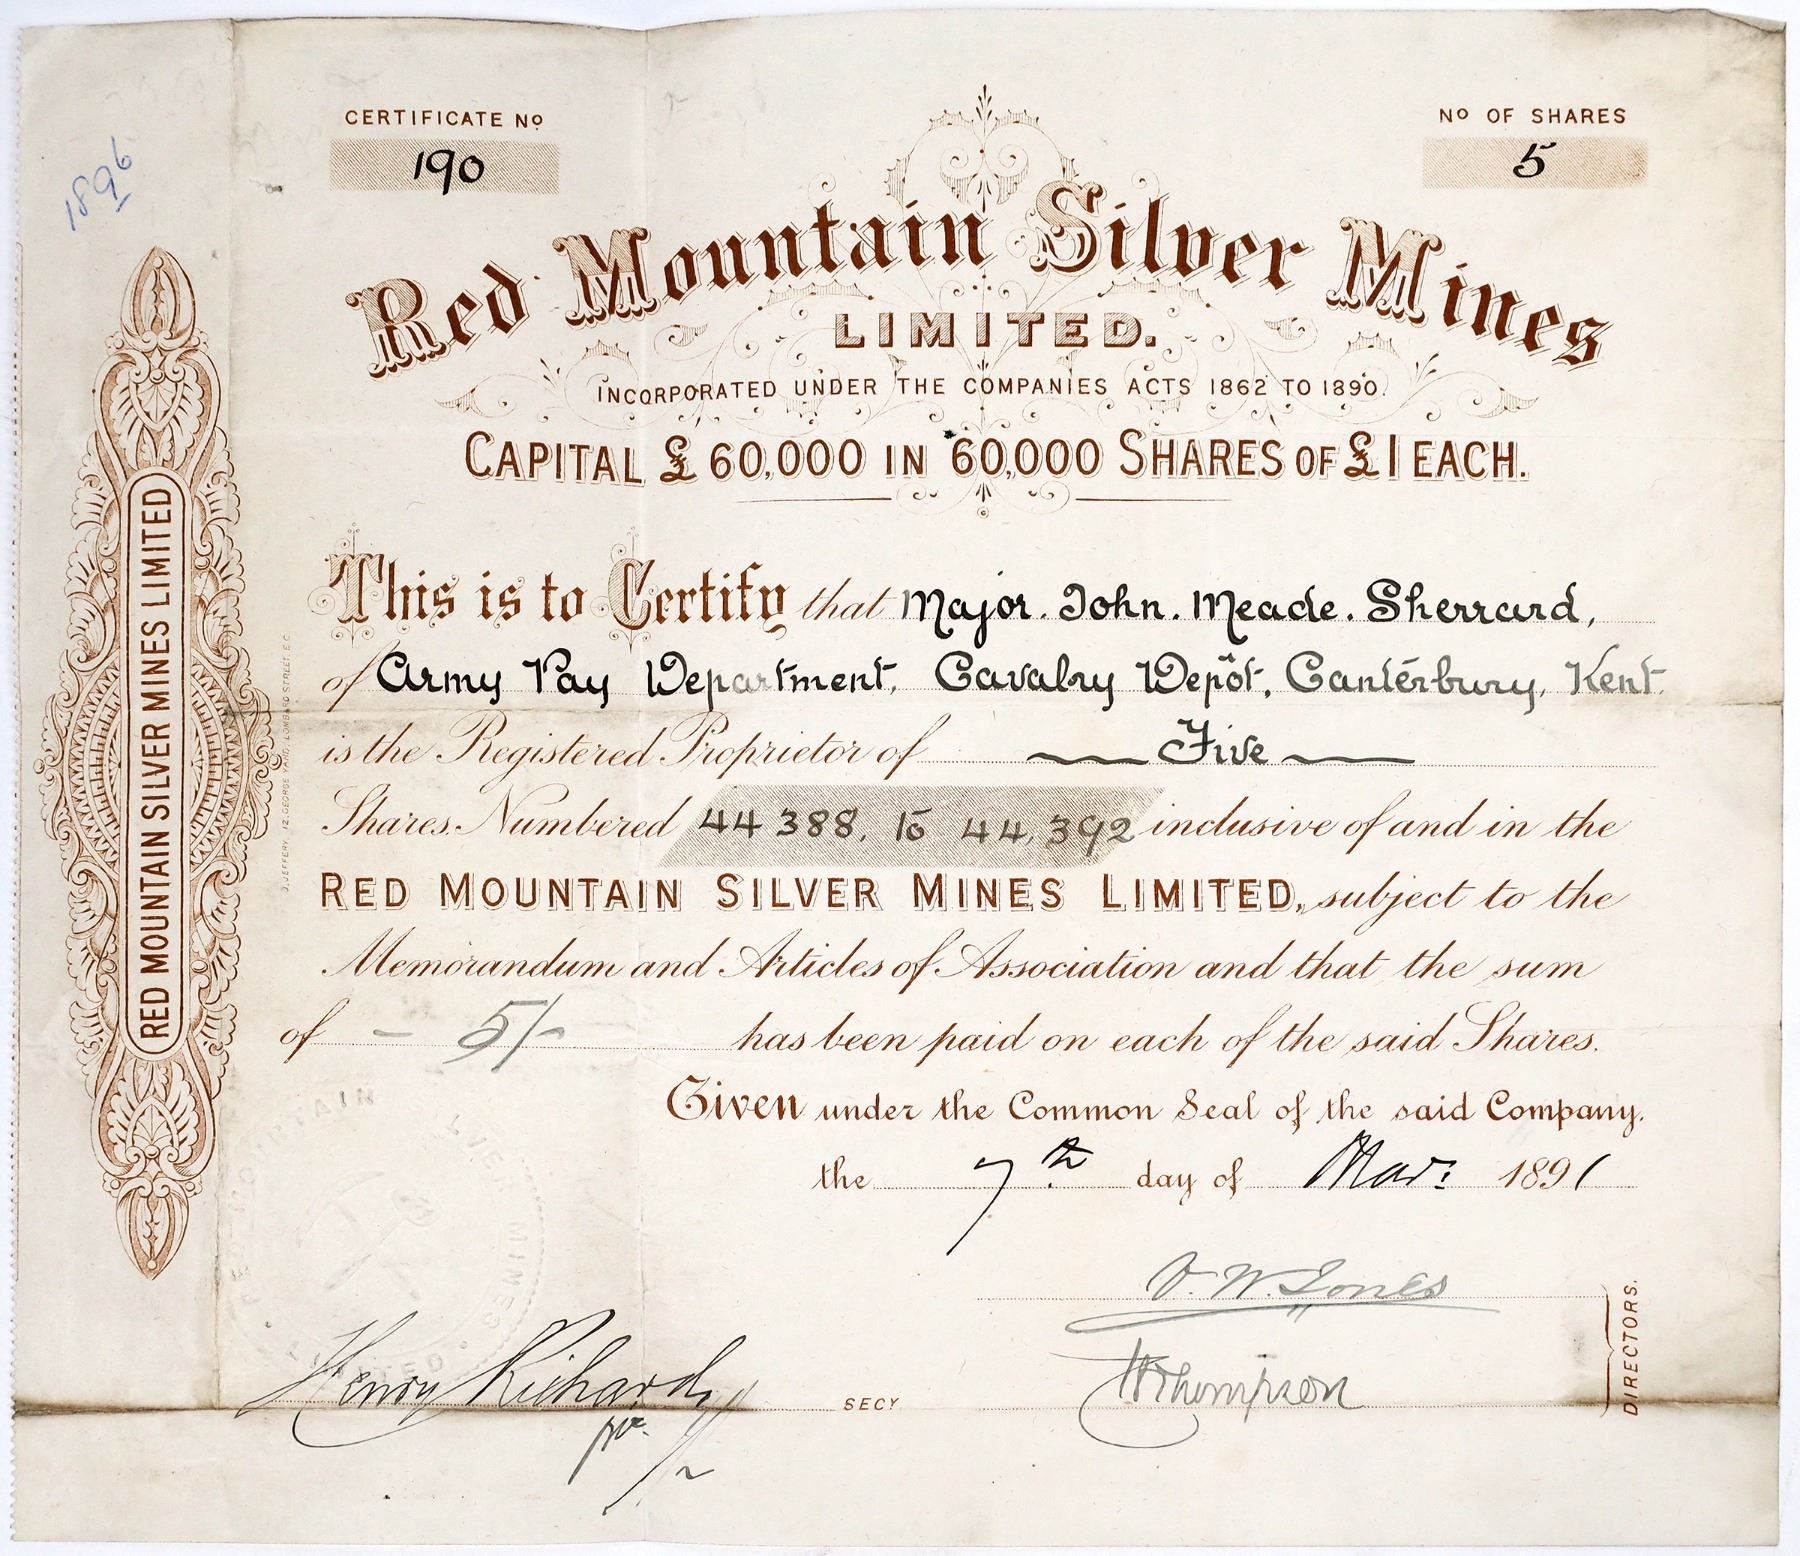 1896
CERTIFICATE Nº
190
Nº OF SHARES
5
Red Mountain Silver Mines
LIMITED.
INCORPORATED UNDER THE COMPANIES ACTS 1862 TO 1890.
CAPITAL £60,000 IN 60,000 SHARES OF £1 EACH.
This is to Certify that Major. John. Meade. Sherrard,
of Army Pay Department, Cavalry Depôt, Canterbury, Kent.
is the Registered Proprietor of Five
Shares. Numbered 44388, to 44,392 inclusive of and in the
RED MOUNTAIN SILVER MINES LIMITED, subject to the
Memorandum and Articles of Association and that the sum
of - 5/- has been paid on each of the said Shares.
Given under the Common Seal of the said Company.
the 7th day of Mar: 1891
V. W. Jones
Thompson
DIRECTORS.
Henry Richards
SECY
RED MOUNTAIN SILVER MINES LIMITED
J. JEFFERY, 12, GEORGE YARD, LOMBARD STREET, E.C.
MOUNTAIN MINES LIMITED